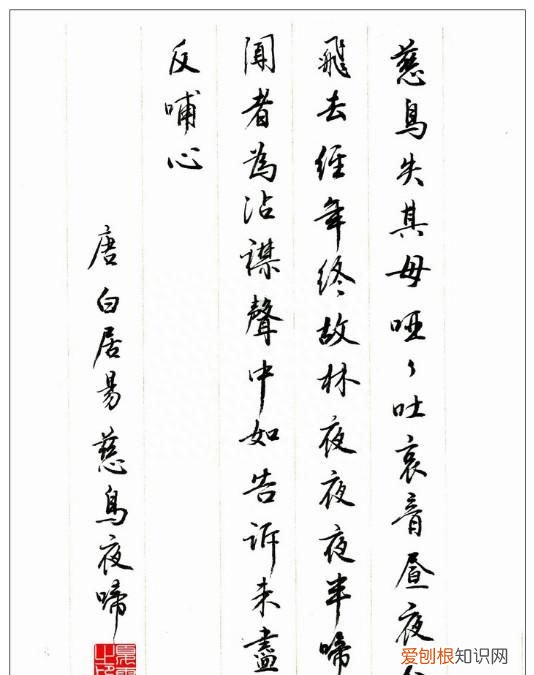 慈烏失其母哑々吐哀音昼夜
飛去经年终故林夜夜夜半啼
聞者為沾襟聲中如告诉未盡
反哺心
唐白居易慈烏夜啼
爱刨根知识网